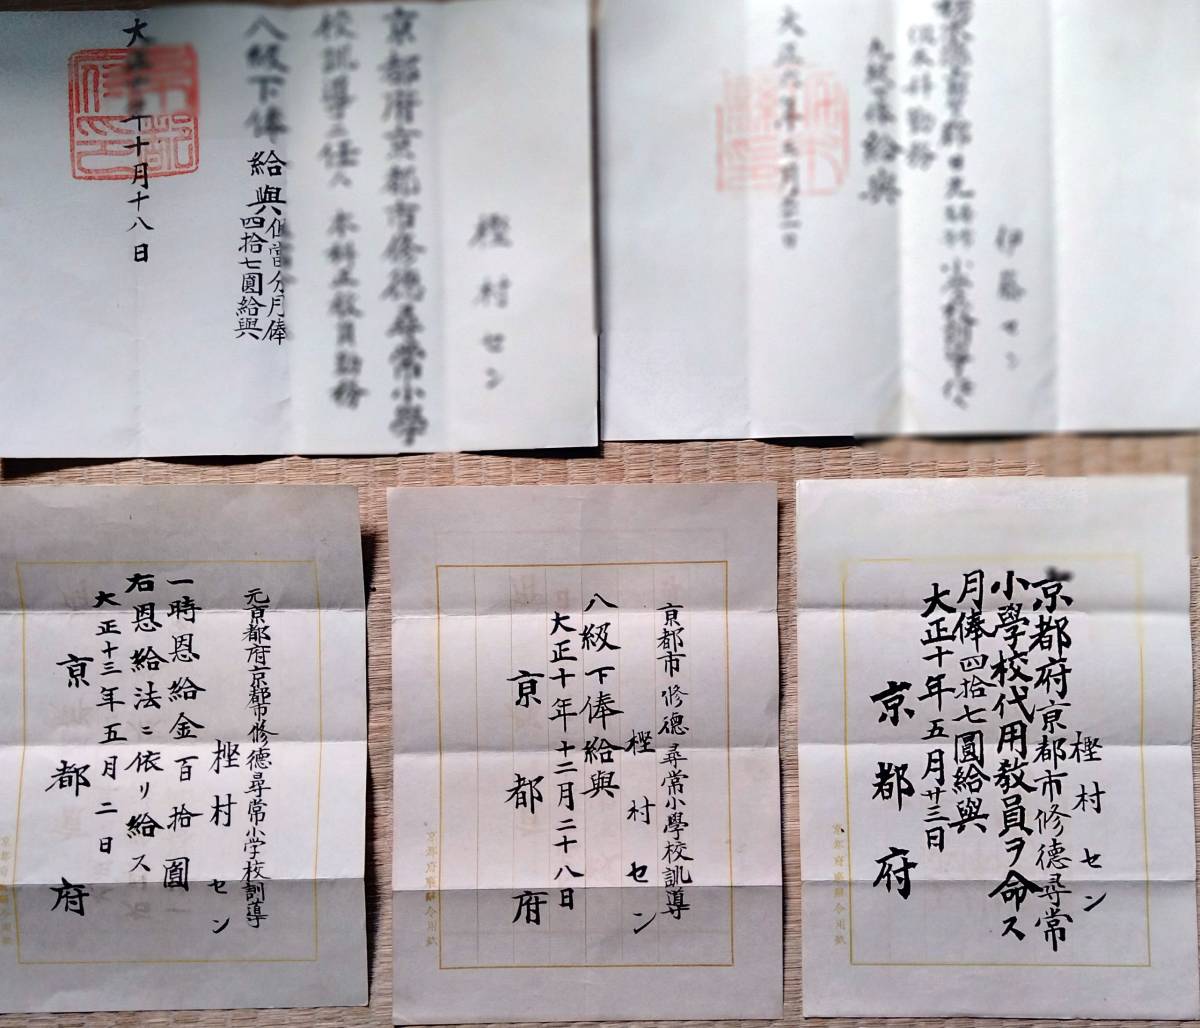 樫村セン
京都府京都市修徳尋常小學
校訓導ニ任ス 本科正教員勤務
八級下俸給與
但當分月俸
四拾七圓給與
大正十年十月十八日
伊藤セン
給與
樫村セン
京都府京都市修德尋常
小學校代用教員ヲ命ス
月俸四拾七圓給與
大正十年五月廿三日
京都府
京都府廳辭令用紙
京都市修德尋常小學校訓導
樫村セン
八級下俸給與
大正十年十二月二十八日
京都府
京都府廳辭令用紙
元京都府京都市修德尋常小学校訓導
樫村セン
一時恩給金百拾圓
右恩給法ニ依リ給ス
大正十三年五月二日
京都府
京都府廳辭令用紙